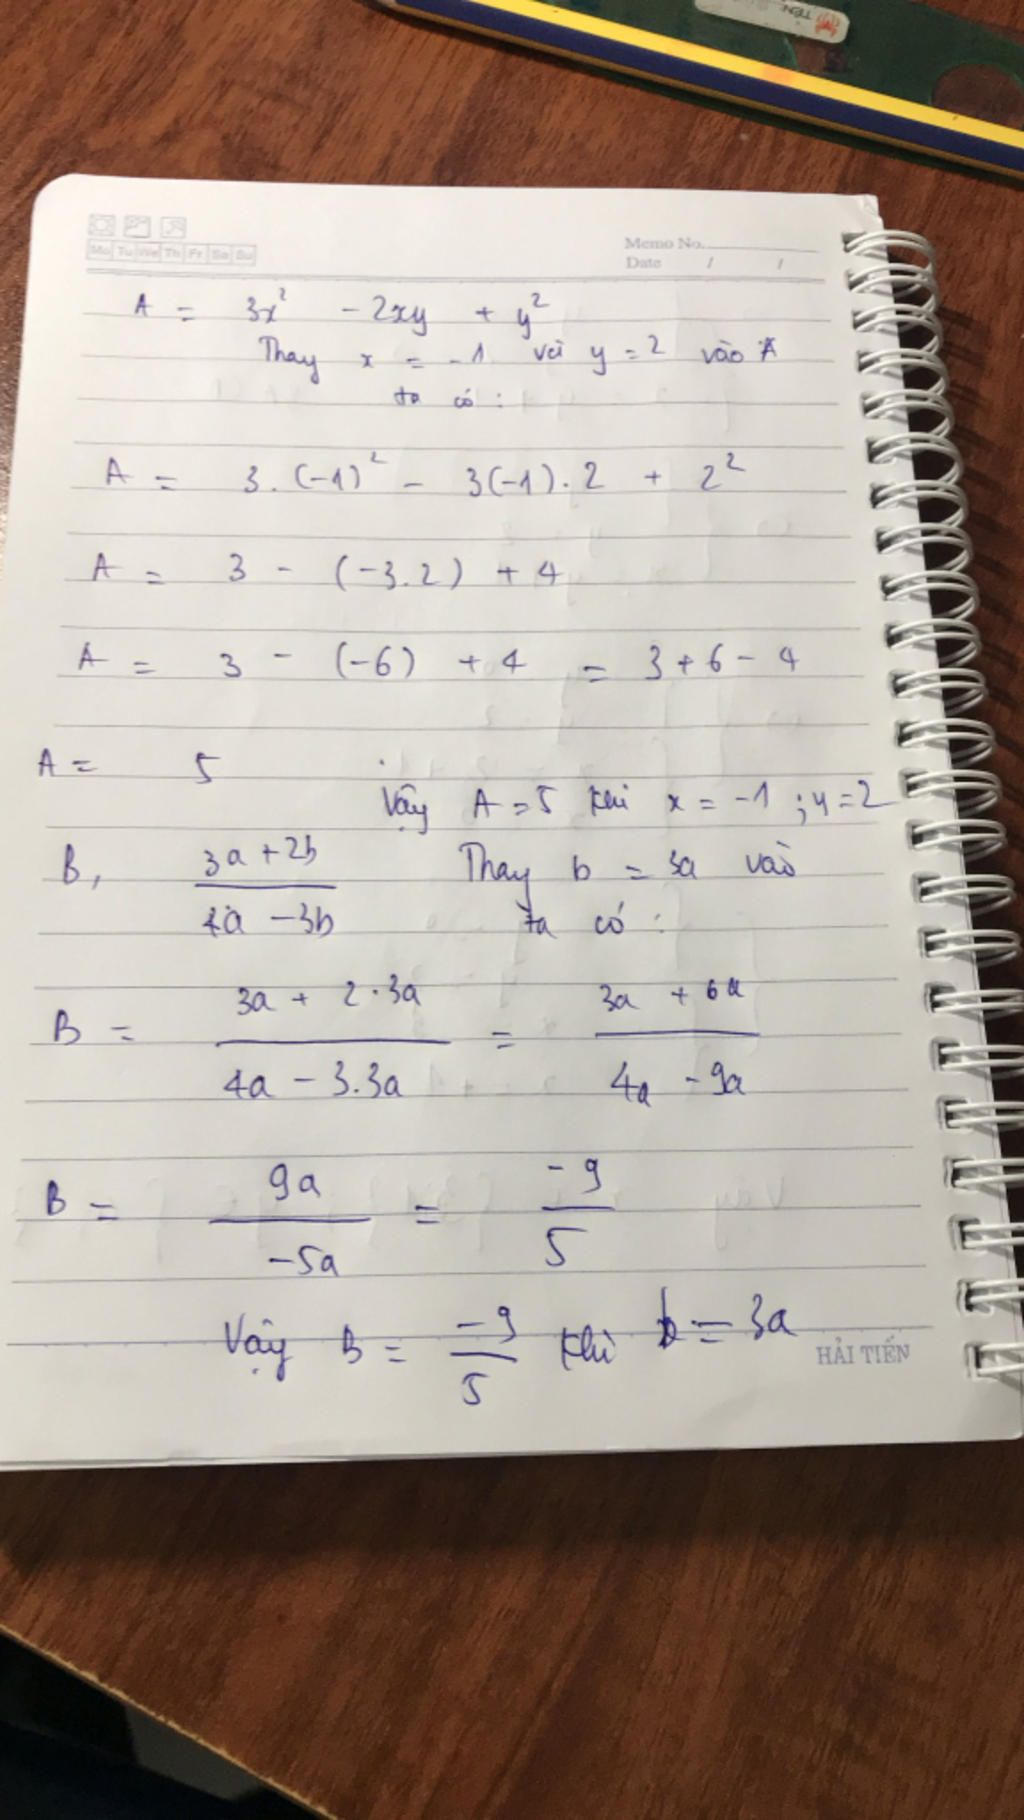 TIẾN
Mo Tu We Th Fr Sa Su
Memo No.
Date / /
A = 3x² - 2xy + y²
Thay x = -1 với y = 2 vào A
ta có :
A = 3.(-1)² - 3(-1).2 + 2²
A = 3 - (-3.2) + 4
A = 3 - (-6) + 4 = 3 + 6 - 4
A = 5
Vậy A = 5 khi x = -1 ; y = 2
B, (3a + 2b)/(4a - 3b) Thay b = 3a vào
ta có :
B = (3a + 2.3a)/(4a - 3.3a) = (3a + 6a)/(4a - 9a)
B = 9a/-5a = -9/5
Vậy B = -9/5 khi b = 3a
HẢI TIẾN